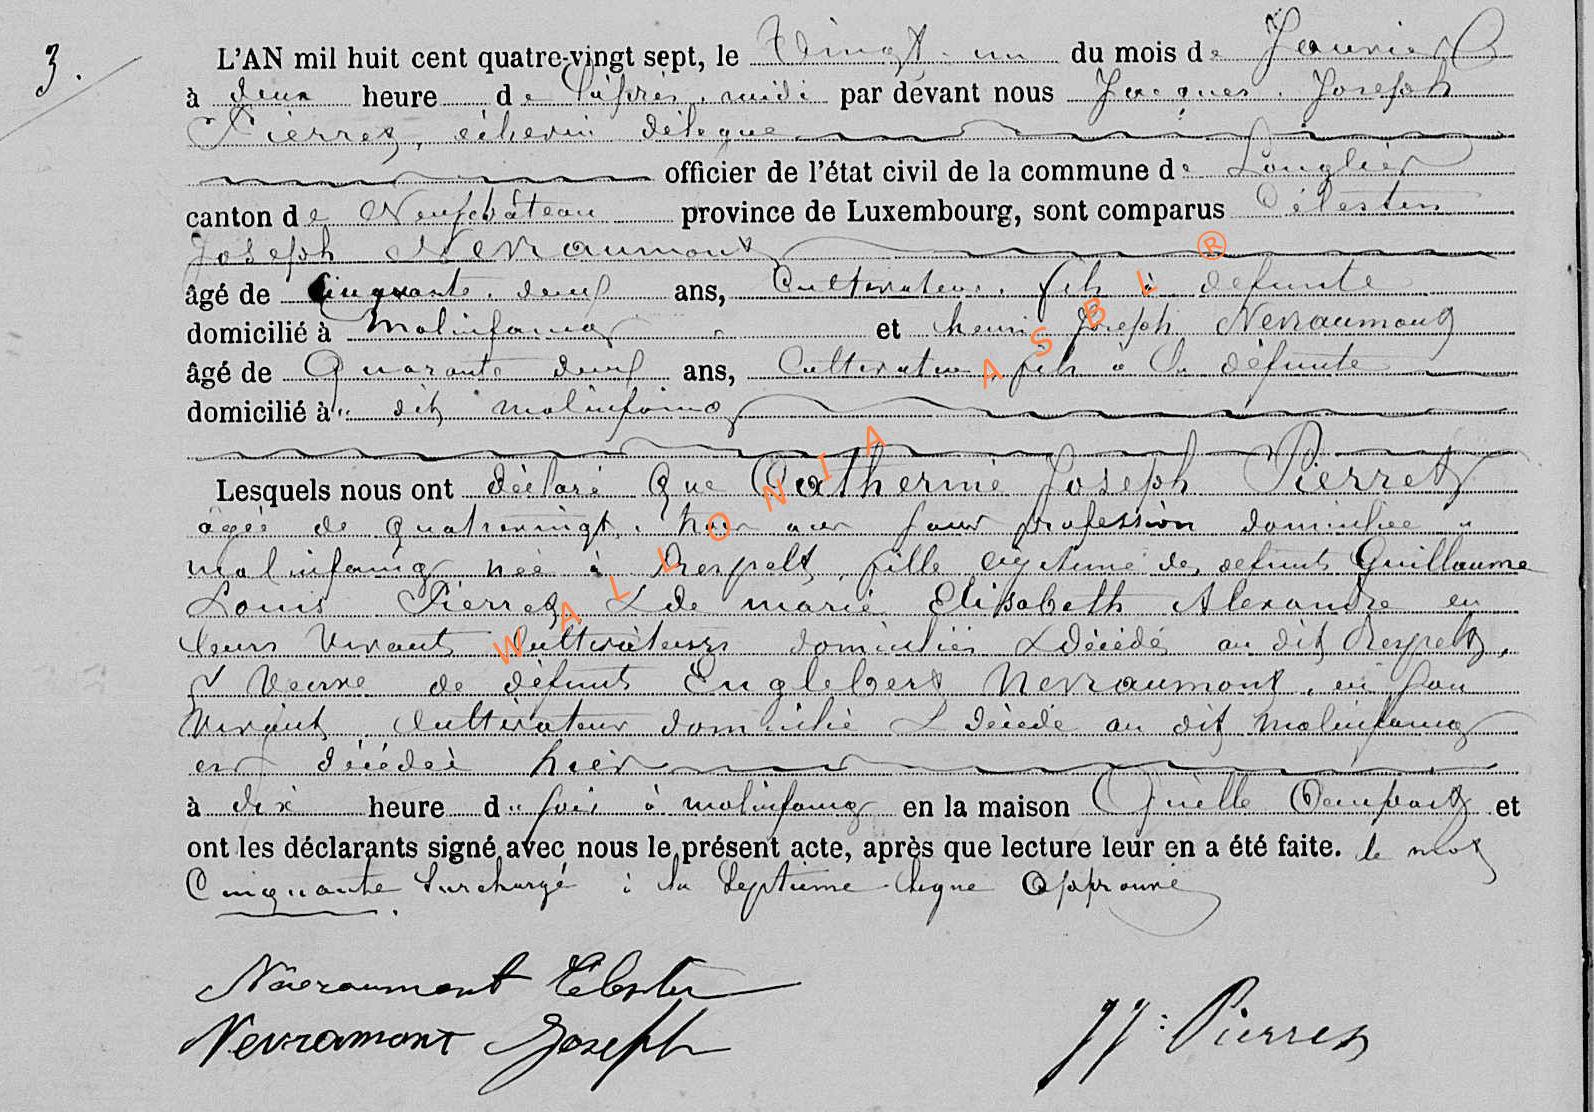 3.
L'AN mil huit cent quatre-vingt sept, le Vingt-un du mois de Janvier
à deux heure de l'après-midi par devant nous Jacques Joseph
Pierret, échevin délégué
officier de l'état civil de la commune de Longlier
canton de Neufchâteau province de Luxembourg, sont comparus Célestin
Joseph Nevraumont
âgé de Cinquante-deux ans, Cultivateur, fils à défunte
domicilié à Molinfaing et henri Joseph Nevraumont
âgé de Quarante deux ans, Cultivateur, fils à la défunte
domicilié à dit molinfaing
Lesquels nous ont déclaré que Catherine Joseph Pierret
âgée de quatrevingt ans sans profession domiciliée à
molinfaing née à Respelt, fille légitime des defunts Guillaume
Louis Pierret & de marie Elisabeth Alexandre en
leurs vivant Cultivateurs domiciliés & décédé au dit Respelt,
& Veuve de défunts Englebert Nevraumont, en son
vivant Cultivateur domicilié & décédé au dit molinfaing
est décédée hier
à dix heure du soir à molinfaing en la maison Qu'elle Occupait et
ont les déclarants signé avec nous le présent acte, après que lecture leur en a été faite. le mot
Cinquante surchargé à la septième ligne Approuvé
Névraumont Célestin
Nevramont Joseph
JJ: Pierret
WALLONIA ASBL ®